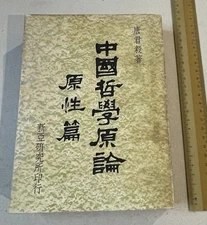 唐君毅著
中國哲學原論
原性篇
新亞研究所印行